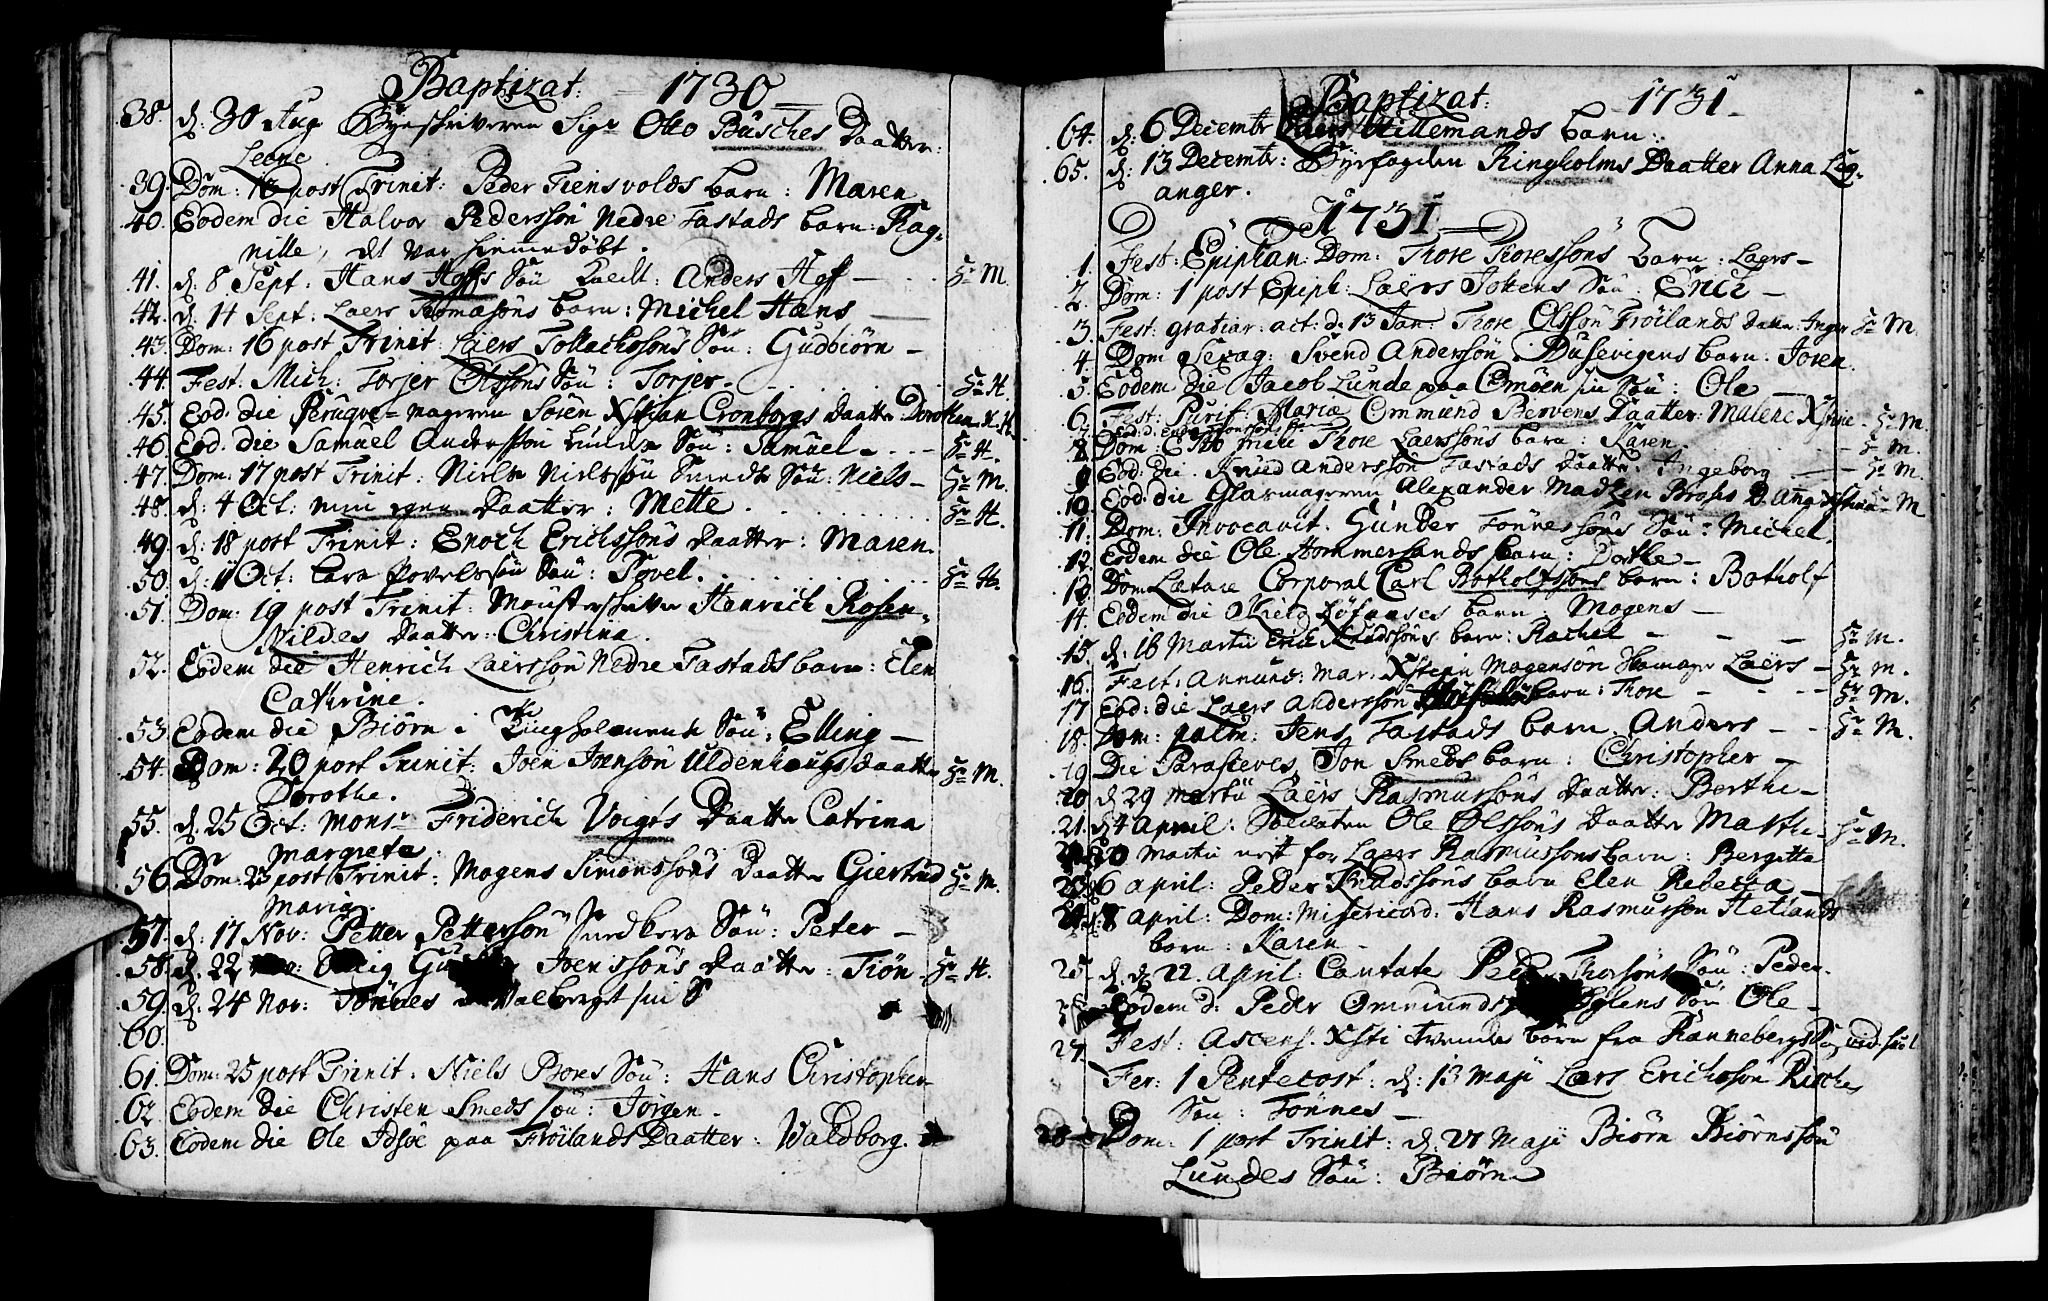 Baptizat: 1730
38. d: 30 Aug Byeskriveren Sigr Otto Büsches Daatter:
Leene.
39. Dom: 13 post Trinit: Peder Tiensvolds barn: Maren
40. Eodem die Halvor Pederssøn Nedre Tastads barn: Rag-
nille, det var hiemedøbt.
41. d. 8 Sept. Hans Hoffs Søn kaldt: Anders Hoff — Hr M.
42. d 14 Sept: Laers Thomæsøns barn: Michel Hans —
43. Dom: 16 post Trinit: Laers Tollachssøns Søn: Gudbiørn —
44. Fest. Mich: Torjer Olssøns Søn: Torjer. Hr H.
45. Eod. die Peruqve-mageren Søren Xstian Cronborgs Daatter Dorothea Hr H.
46. Eod. die Samuel Anderssøn Lunds Søn: Samuel. Hr H.
47. Dom: 17 post Trinit: Niels Nielssøn Smeds Søn: Niels — Hr M.
48. d: 4 Oct: min egen Daatter: Mette. Hr H.
49. d: 18 post Trinit: Enoch Erichssøns Daatter: Maren.
50. d: 11 Oct: Lars Povelssøn Søn: Povel. Hr H.
51. Dom: 19 post Trinit: Mønsterskriver Henrich Rosen-
vildes Daatter: Christina.
52. Eodem die Henrich Laerssøn Nedre Tastads barn: Elen
Cathrine.
53. Eodem die Biørn i Ringholmens Søn: Elling —
54. Dom: 20 post Trinit: Joen Joensøn Uldenhaugs Daatter Hr M.
Dorothe.
55. d. 25 Oct: Monsr Friderich Voigts Daatter Catrina
Margreta.
56. Dom: 23 post Trinit: Mogens Simonssøns Daatter Giertrud Hr M.
Maria.
57. d: 17 Nov: Petter Petterssøn Snedkers Søn: Peter —
58. d. 22 Joenssøns Daatter: Tiøn. Hr H.
59. d: 24 Nov: Tønnes Valberget sin S
60.
61. Dom: 25 post Trinit. Niels Bores Søn: Hans Christopher
62. Eodem die Christen Smeds søn: Jørgen.
63. Eodem die Ole Idsøe paa Frøilands Daatter: Valdborg.
Baptizat: 1731
64. d: 6 Decembr Laers Villemands barn:
65. d: 13 Decembr: Byefogden Ringholms Daatter Anna Leg-
anger.
1731
1. Fest: Epiphan: Dom: Thore Thoressøns barn: Laers —
2. Dom: 1 post Epiph: Laers Jokens Søn: Erich —
3. Fest: gratiar: act: d: 13 Jan: Thore Olssøn Frøilands Datter Inger Hr M.
4. Dom Sexag: Svend Anderssøn Busevigens barn: Joren.
5. Eodem die Jacob Lunde paa Omøen sin Søn: Ole —
6. Fest: Purif: Mariæ Ommund Bervens Daatter: Malene Xstine. Hr M.
8. Dom Esto Thore Laerssøns barn: Karen Hr M.
9. Eod: die. Anderssøn Tastads Daatter: Ingeborg — Hr M.
10. Eod: die Glarmageren Alexander Madsen D. Anna Hr M
11. Dom: Invocavit. Gunder Tønnessøns Søn: Michel.
12. Eodem die Ole Hommersands barn: Dorthe —
13. Dom Lætare Corporal Carl Botholfssøns barn: Botholf
14. Eodem die barn: Mogens —
15. d: 16 Martii Erich Knudssøns barn: Rachel — Hr M.
16. Fest: Annunc: Mar: Xsten Mogensøn Laers — Hr M.
17 Eod: die Laers Anderssøn barn: Thore — Hr M.
18. Dom: palm: Jens Tastads barn Anders — Hr M.
19 Die Parasceves Jon Smeds barn: Christopher —
20 d 29 Martii Laers Rasmussøns Daatter: Berthe —
21. d 4 April: Soldaten Ole Olssøns Daatter Marthe. Hr M.
20 Martii Laers Rasmussøns barn: Bergitta
23 6 april: Peder Knudssøns barn Elen Rebecca —
24 d: 8 april: Dom: Misericord: Hans Rasmussøn Hetlands
barn: Karen —
25. d. 22 April: Cantate Peder Thorsøns Søn: Peder.
Eodem d: Peder Ommunds Søn Ole —
27. Fest: Ascens. Xsti tvende børn fra Ranneberg
Fer: 1 Pentecost: d: 13 Maji Laers Erichssøn Risches
Søn: Tønnes —
28 Dom: 1 post Trinit: d: 27 Maji Biørn Biørnssøn
Lundes Søn: Biørn